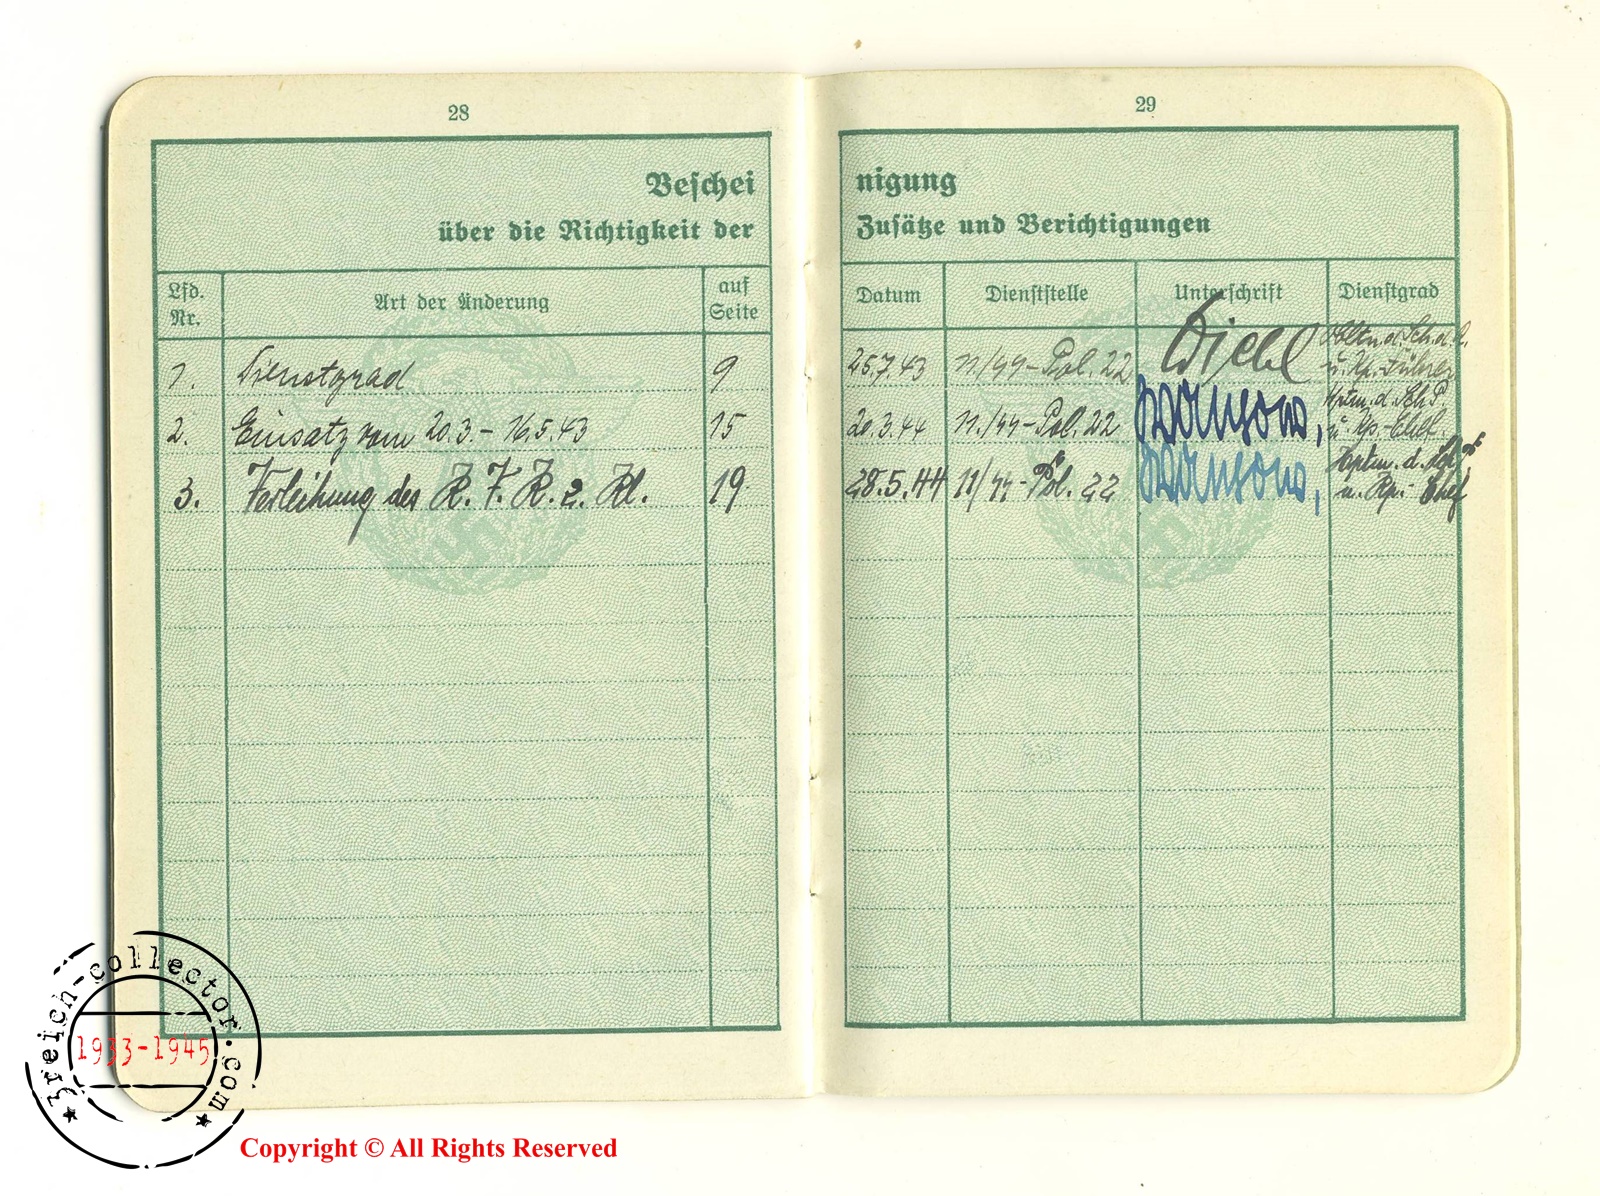 28
Beschei
über die Richtigkeit der
Lfd. Nr. Art der Änderung auf Seite
1. Dienstgrad 9
2. Einsatz vom 20.3. - 16.5.43 15
3. Verleihung des K. V. K. 2. Kl. 19
29
nigung
Zusätze und Berichtigungen
Datum Dienststelle Unterschrift Dienstgrad
25.7.43 11/SS-Pol. 22 u. Kp.-Führer
20.3.44 11./SS-Pol. 22 Hptm. d. Sch P u. Kp.-Chef
28.5.44 11/SS-Pol. 22 Hptm. d. u. Kp.-Chef
3reich-collector.com
1933-1945
Copyright © All Rights Reserved